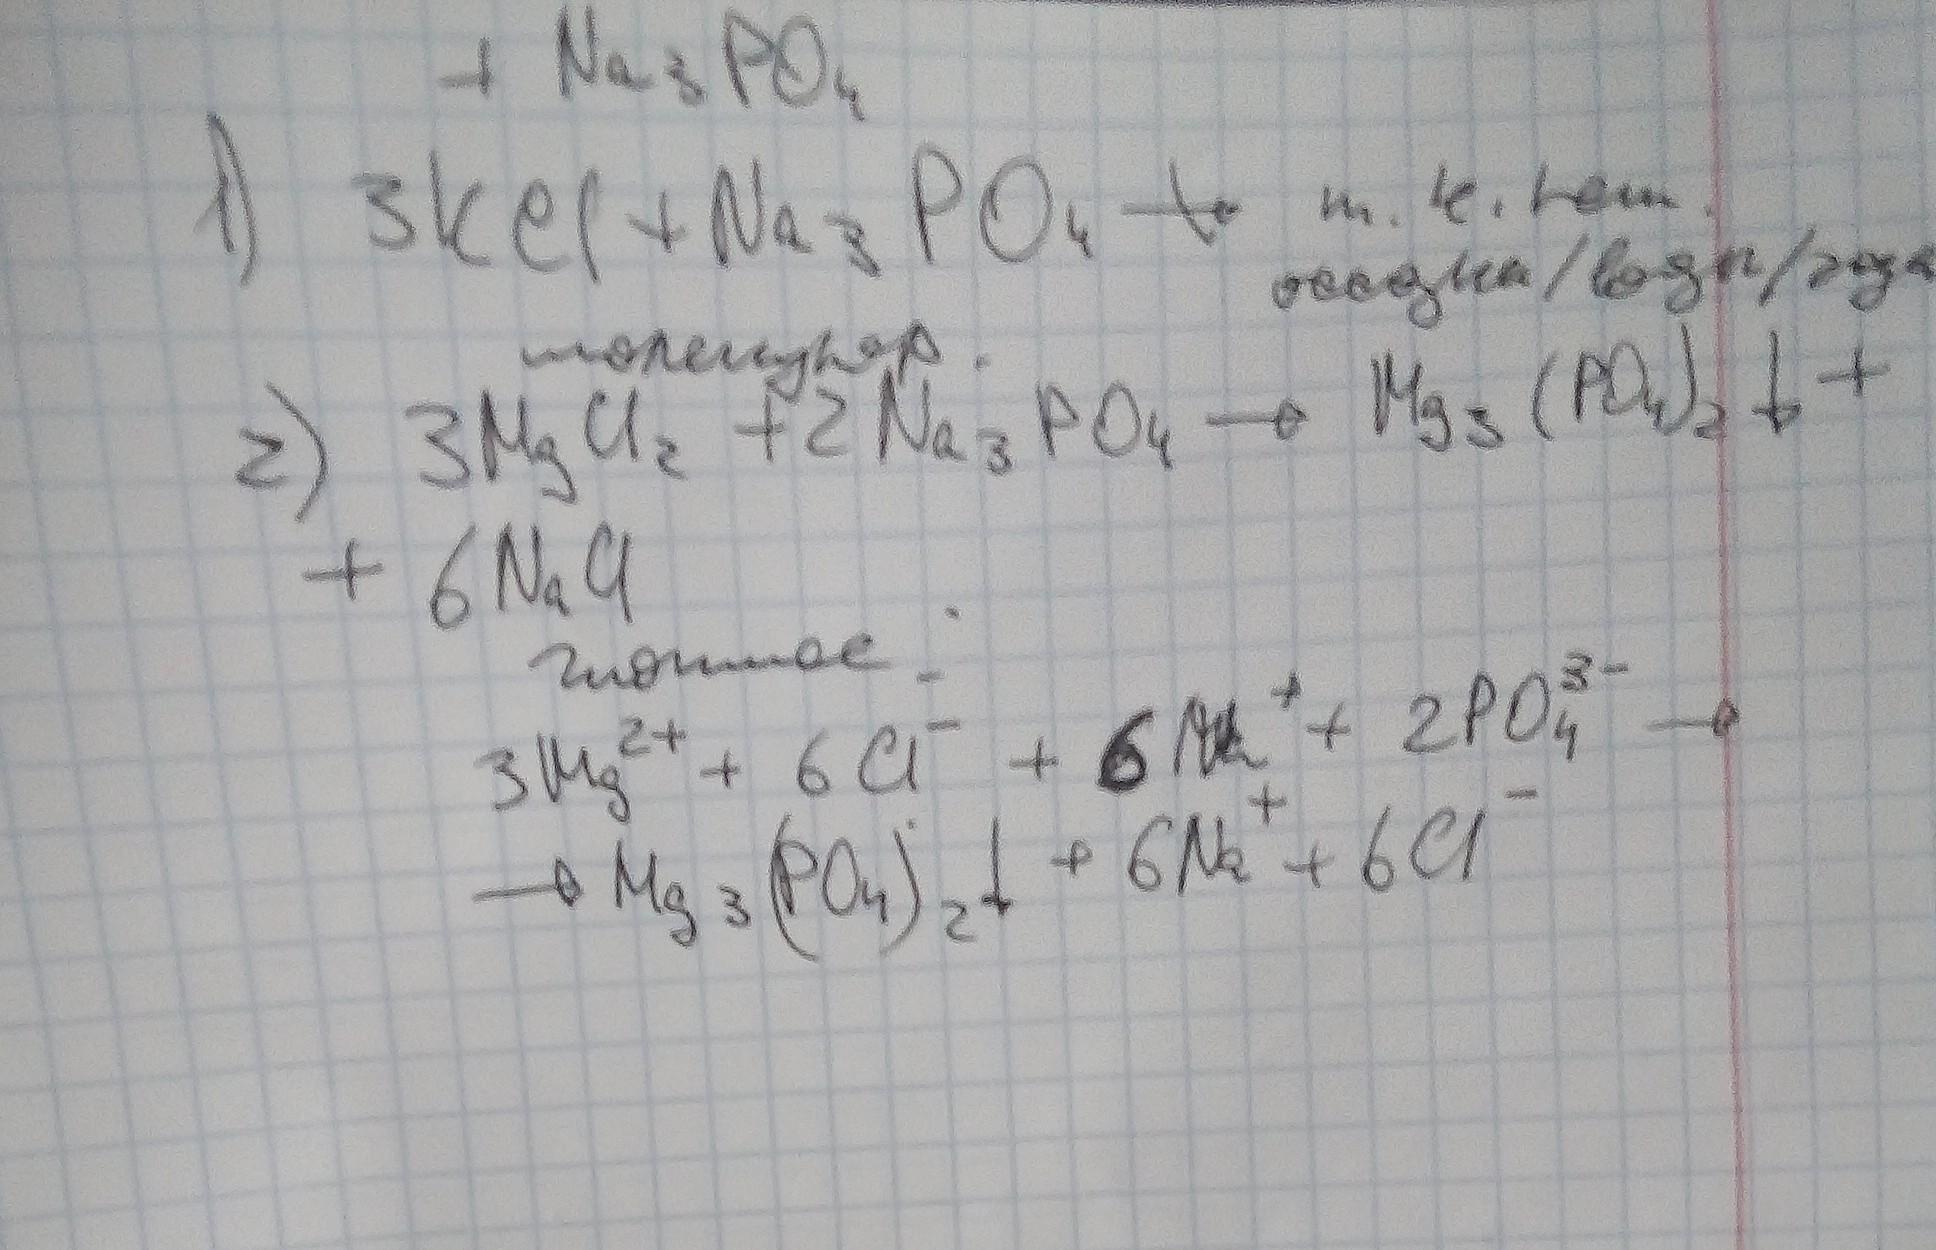 + Na₃PO₄
1) 3KCl + Na₃PO₄ ↛ т. к. нет
осадка/воды/газа
молекуляр.
2) 3MgCl₂ + 2Na₃PO₄ → Mg₃(PO₄)₂↓ +
+ 6NaCl
полное
3Mg²⁺ + 6Cl⁻ + 6Na⁺ + 2PO₄³⁻ →
→ Mg₃(PO₄)₂↓ + 6Na⁺ + 6Cl⁻